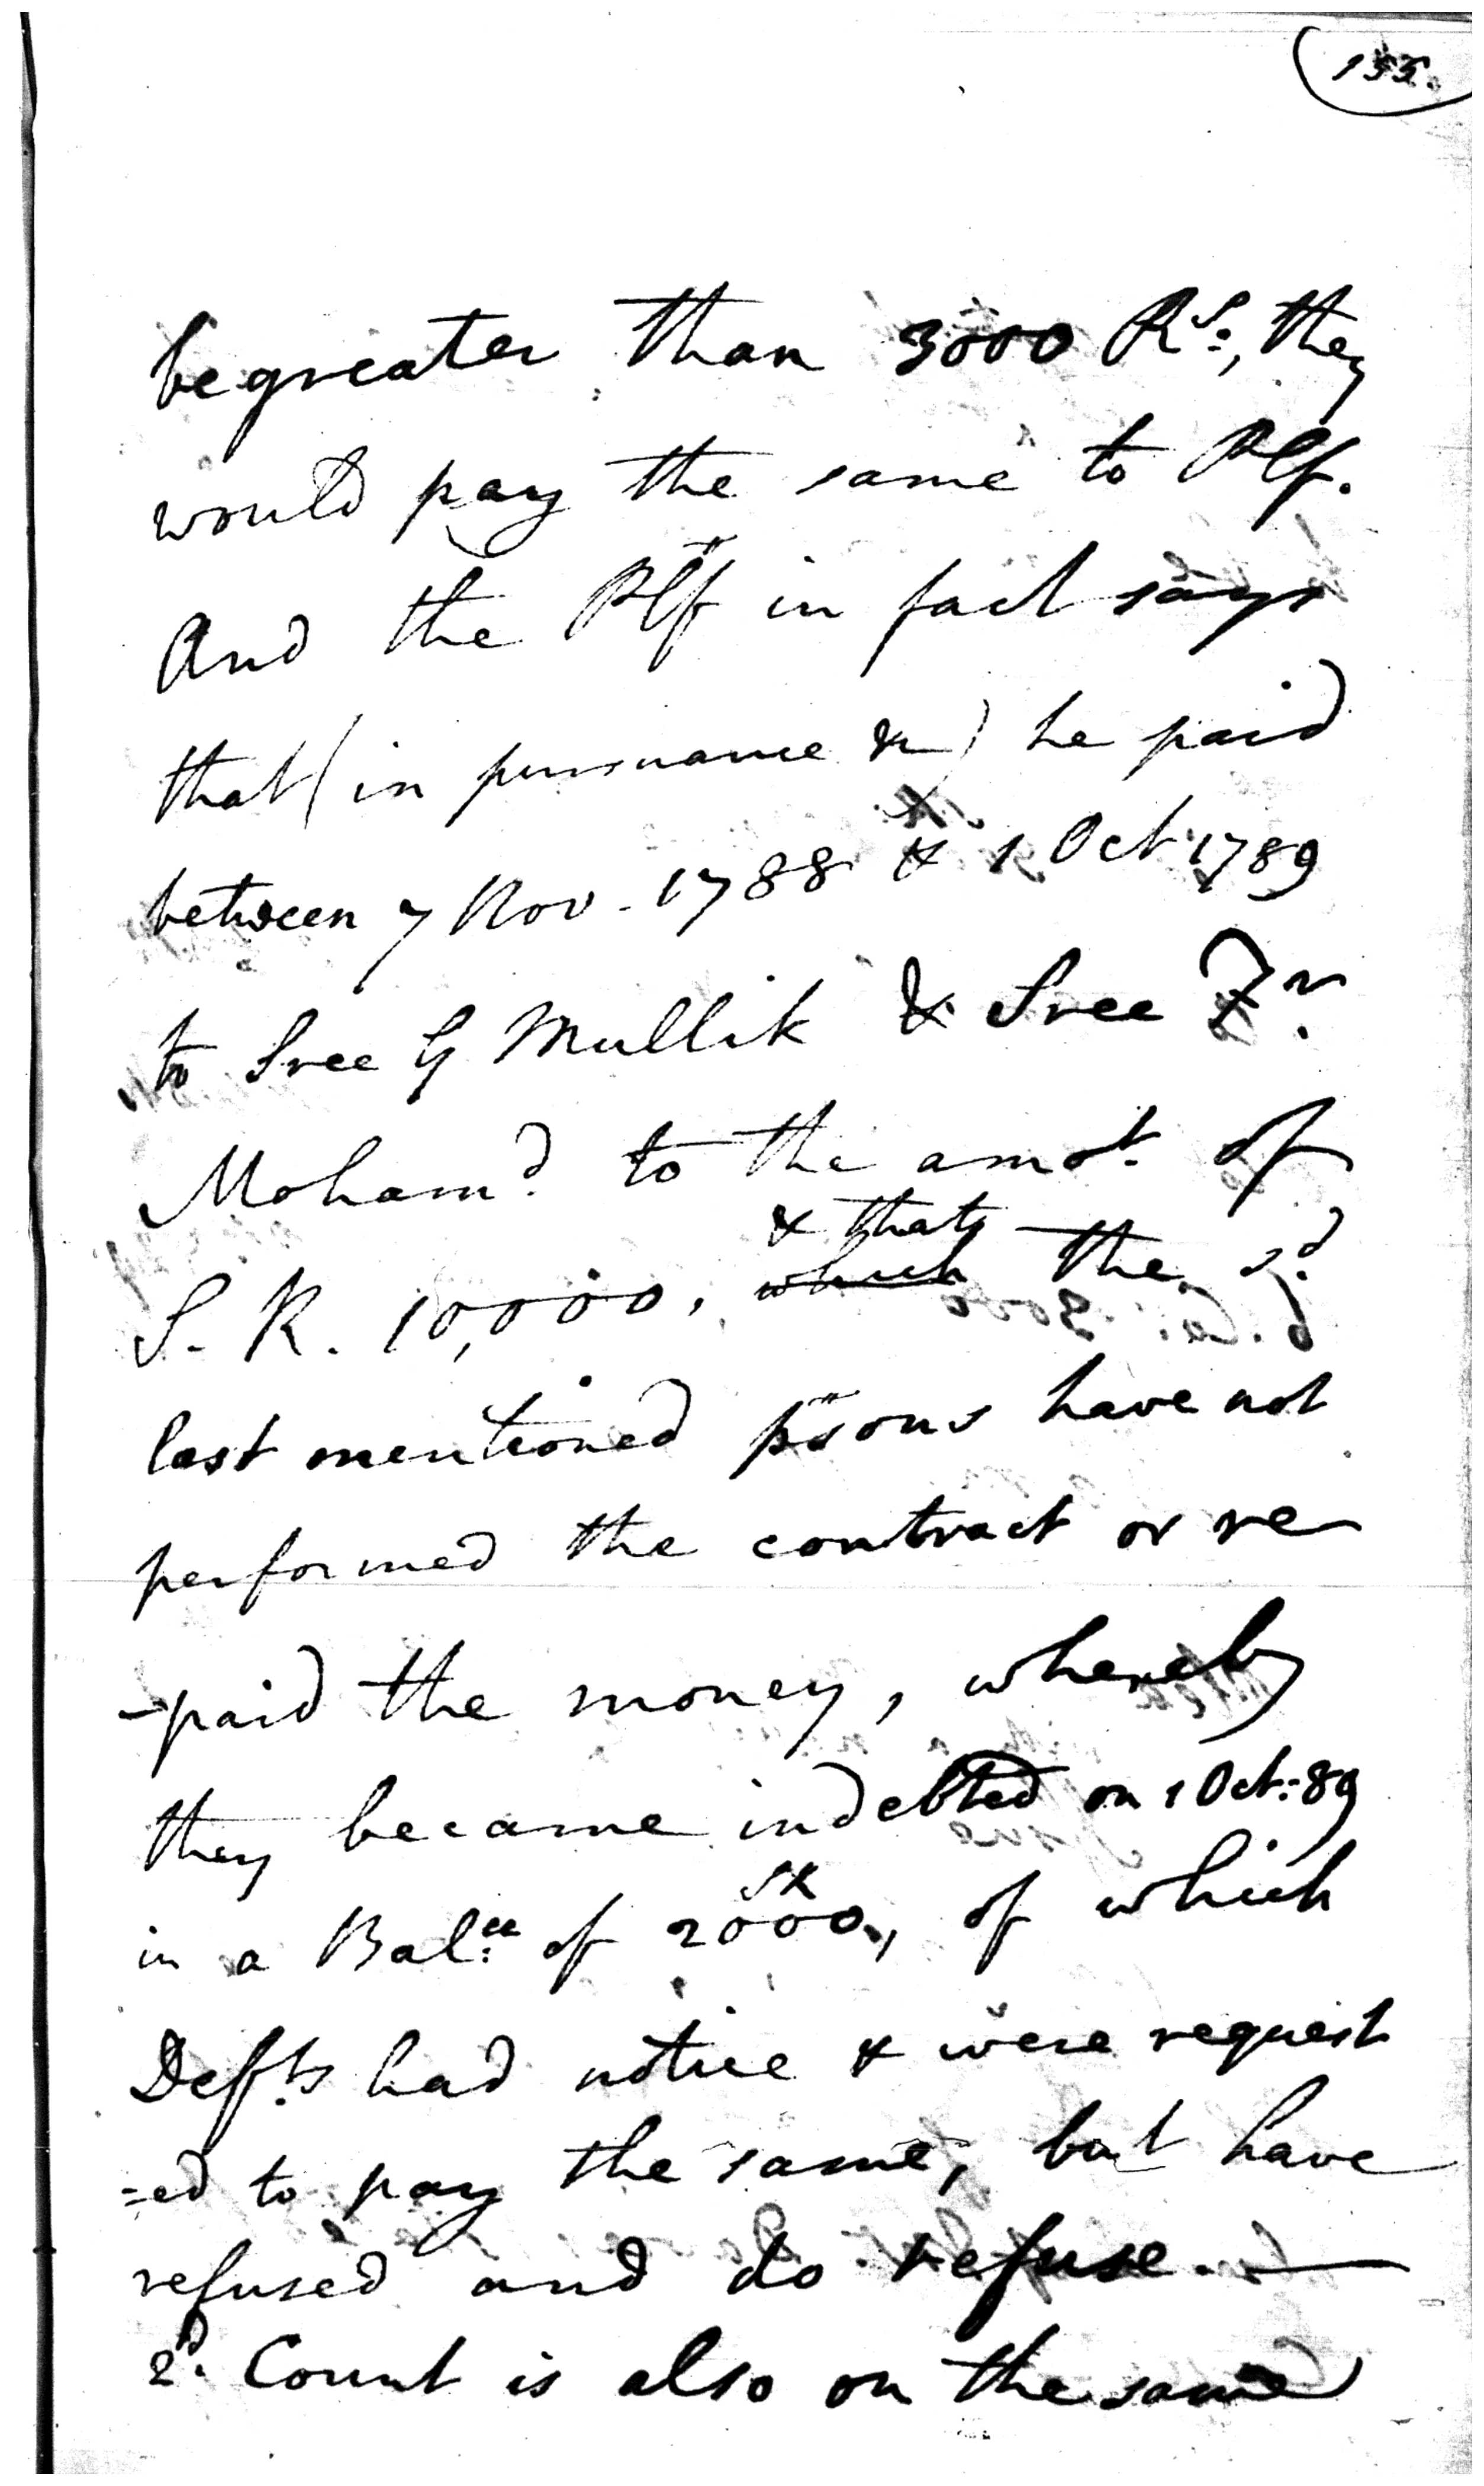 155.
be greater than 3000 Rs:, they
would pay the same to Plf.
And the Plf in fact says
that (in pursuance &c) he paid
between 7 Nov. 1788 & 1 Oct 1789
to Sree G Mullik & Sree
Mohamd. to the amot. of
& that
S. R. 10,000, which the sd.
last mentioned psons have not
performed the contract or re
-paid the money, whereby
they became indebted on 1 Oct: 89
SR
in a Balce: of 2000, of which
Defts. had notice & were request
=ed to pay the same, but have
refused and do refuse. —
2d. Count is also on the same